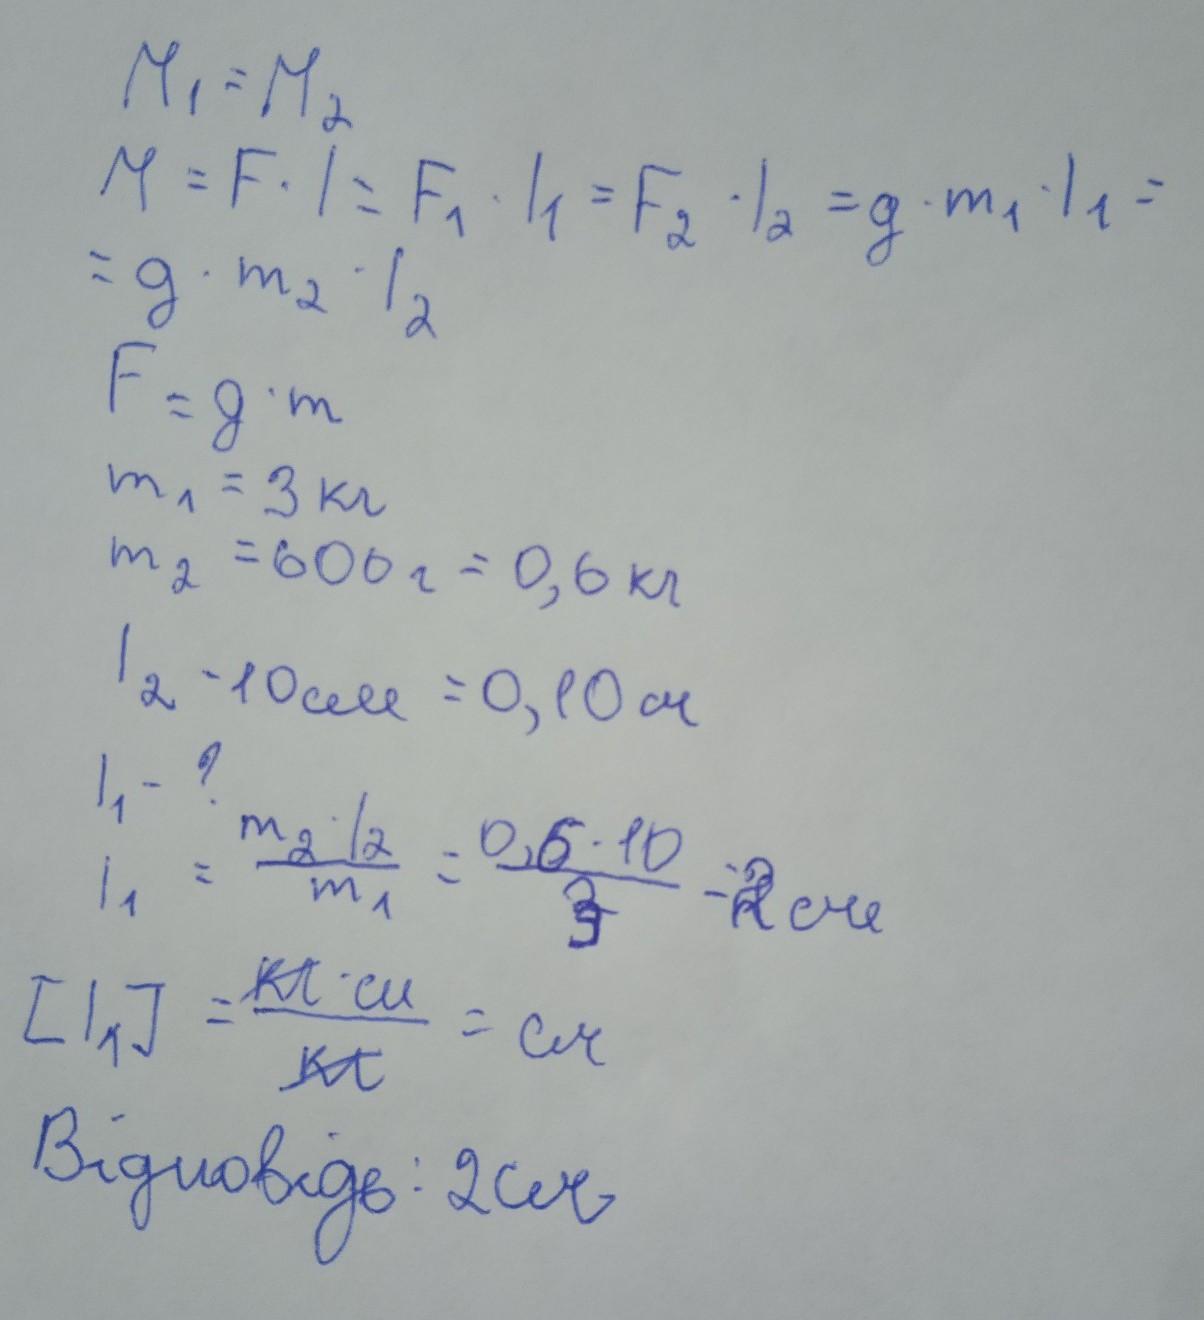 M₁ = M₂
M = F · l = F₁ · l₁ = F₂ · l₂ = g · m₁ · l₁ =
= g · m₂ · l₂
F = g · m
m₁ = 3 кг
m₂ = 600 г = 0,6 кг
l₂ - 10 см = 0,10 м
l₁ - ?
l₁ = (m₂ · l₂) / m₁ = (0,6 · 10) / 3 = 2 см
[l₁] = (кг · см) / кг = см
Відповідь: 2 см